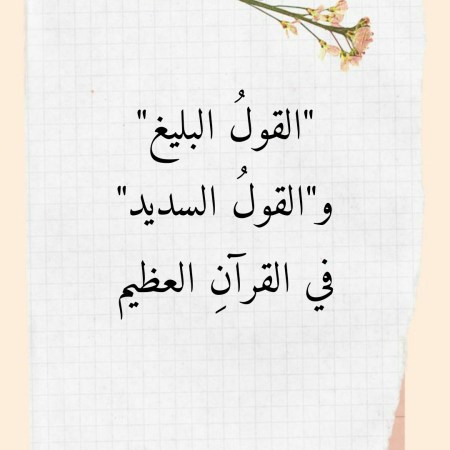 "القولُ البليغ"
و"القولُ السديد"
في القرآنِ العظيم